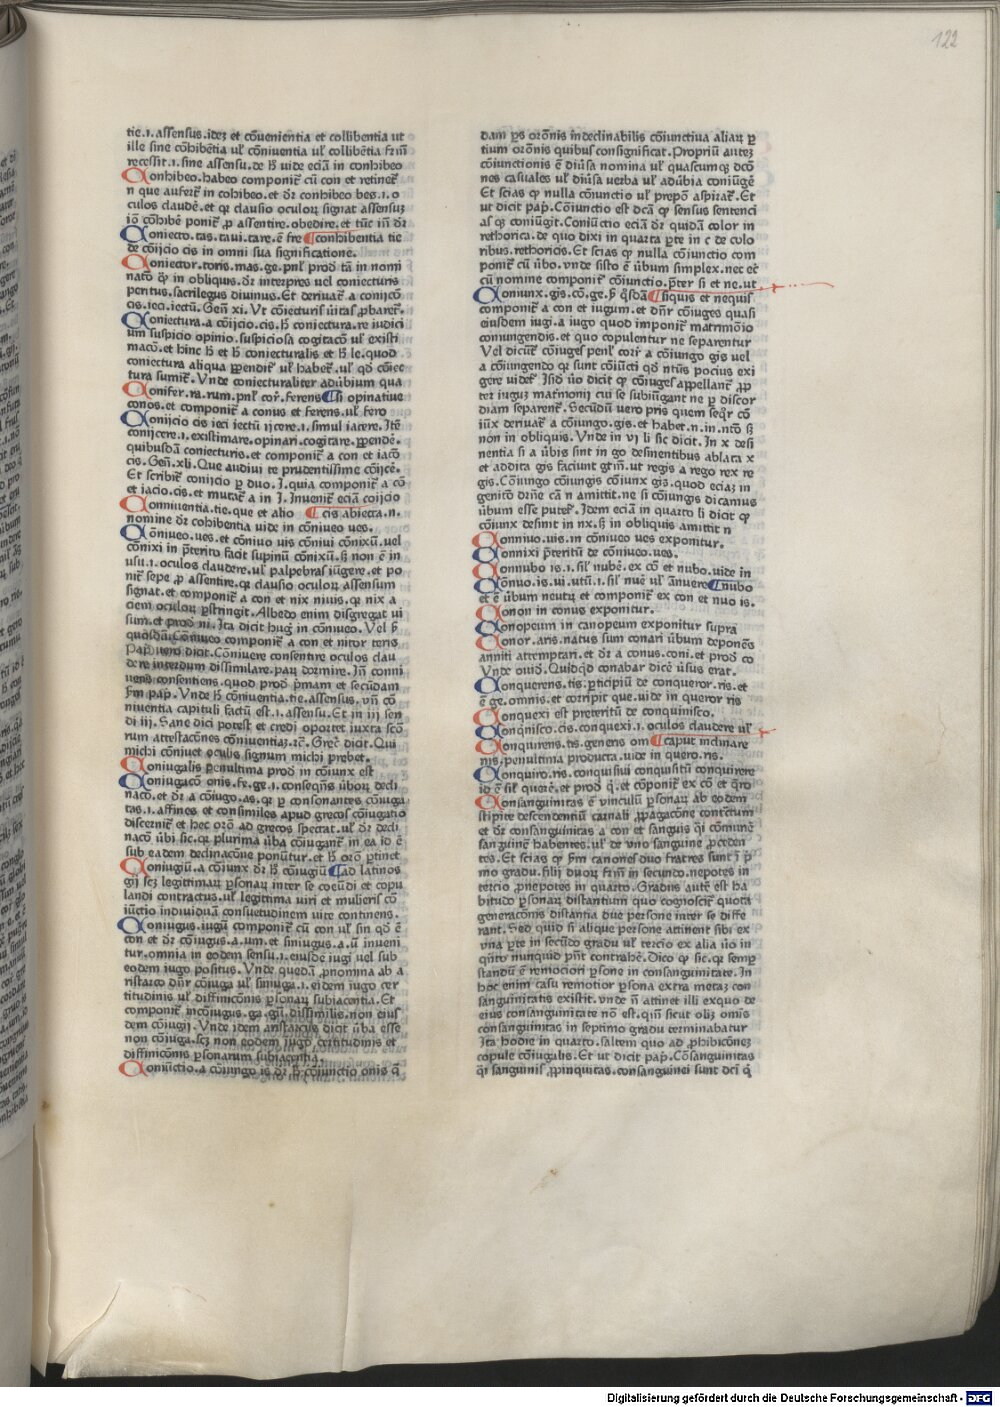 122
tie.i.assensus.idez et cōuenientia et collibentia ut
ille sine cōhibētia ul' cōniuentia ul' collibētia frīm̄
recessit.i.sine assensu.de h̄ uide eciā in conhibeo
Conhibeo.habeo componit᷑ cū con et retinet᷑
n que aufert᷑ in cohibeo.et dr̄ conhibeo bes.i.o
culos claudē.et qꝛ clausio oculoꝝ signat assensuz
iō cōhibē ponit᷑ ꝓ assentire.obedire.et tūc iū dr̄
Coniecto.tas.taui.tare.ē fre ¶conhibentia tie
de cōijcio cis in omni sua significatione.
Coniector.toris.mas.ge.pnl' prod tā in nomi
natō ꝙ in obliquis.dr̄ interpres uel coniecturis
peritus.sacrilegus diuinus.Et deriuat᷑ a conijcō
cis.ieci.iectū.Geñ xl.Vt cōiecturis ūitas ꝓbaret᷑.
Coniectura a cōijcio.cis.h̄ coniectura.re iudici
um suspicio opinio.suspiciosa cogitacō ul' existi
macō.et hinc h̄ et h̄ coniecturalis et h̄ le.quod
coniectura aliqua ꝑpendit᷑ ul' habet᷑.ul' qd̄ cōiec
tura sumit᷑.Vnde coniecturaliter adūbium qua
Conifer.ra.rum.pnl' cor̄.ferens ¶si opinatiue
conos.et componit᷑ a conus et ferens.ul' fero
Conijcio cis ieci iectū ijcere.i.simul iacere.Itē
conijcere.i.existimare.opinari.cogitare.ꝑpendē.
quibusdā coniecturis.et componit᷑ a con et iacō
cis.Geñ.xli.Que audiui te prudentissime cōijcē.
Et scribit᷑ conijcio ꝑ duo.J.quia componit᷑ a cō
et iacio.cis.et mutat᷑ a in J.Inuenit᷑ eciā coijcio
Conniuentia.tie.que et alio ¶cis abiecta.n.
nomine dr̄ cohibentia uide in cōniueo ues.
Cōniueo.ues.et cōniuo uis cōniui cōnixū.uel
cōnixi in p̄terito facit supinū cōnixū.ſꝫ non ē in
usu.i.oculos claudere.ul' palpebras iūgere.et po
nit᷑ sepe ꝓ assentire.qꝛ clausio oculoꝝ assensum
signat.et componit᷑ a con et nix niuis.qꝛ nix a
ciem oculoꝝ ꝑstringit.Albedo enim disgregat ui
sum.et prod ni.Ita dicit hug̊ in cōniueo.Vel h̄
quosdā Cōniueo componit᷑ a con et nitor teris
Pap̄.uero dicit.Cōniuere consentire oculos clau
dere interdum dissimilare.paꝝ dormire.Iñ conni
uens consentiens.quod prod p̄mam et secūdam
ẜm pap̄.Vnde h̄ cōniuentia.tie assensus.vn̄ cō
niuentia capituli factū est.i.assensu.Et in iij sen
di iij.Sane dici potest et credi oportet iuxta scō
rum attestacōnes cōniuentiaꝫ.rc̄.Grec̄ dicit.Qui
michi cōniuet oculis signum michi prebet.
Coniugalis penultima prod in cōiunx est
Coniugacō onis.fe.ge.i.consequn̄s ūboꝝ decli
nacō.et dr̄ a cōiugo.as.qꝛ ꝑ consonantes cōiuga
tas.i.affines et consimiles apud grecos cōiugatio
discernit᷑ et hec orō ad grecos spectat.ul' dr̄ decli
nacō ūbi sic.qꝛ plurima ūba cōiugant᷑ in ea id ē
sub eadem declinacōne ponūtur.et h̄ orō ꝑtinet
Coniugiū.a cōiunx dr̄ h̄ cōiugiū ¶ad latinos
gij scꝫ legittimaꝝ ꝑsonaꝝ inter se coeūdi et copu
landi contractus.ul' legittima uiri et mulieris cō
iūctio indiuiduā consuetudinem uite continens.
Coniugus.iugū componit᷑ cū con ul' sin qd̄ ē
con et dr̄ cōiugus.a.um.et siniugus.a.ū inueni
tur.omnia in eodem sensu.i.eiusdē iugi uel sub
eodem iugo positus.Vnde quedā ꝓnomina ab a
ristarco dn̄r cōiuga ul' siniuga.i.eidem iugo cer
titudinis ul' diffinicōnis ꝑsonaꝝ subiacentia.Et
componit᷑ incōiugus.ga.gū.dissimilis.non eius
dem cōiugij.Vnde idem aristarcus dicit ūba esse
non cōiuga.scꝫ non eodem iugo certitudinis et
diffinicōnis ꝑsonarum subiacentia.
Coniūctio.a cōiungo is dr̄ h̄ cōiunctio onis q̄
dam ꝑs orōnis indeclinabilis cōiunctiua aliaꝝ ꝑ
tium orōnis quibus consignificat.Propriū autez
cōiunctionis ē diūsa nomina ul' quascumqꝫ dcō
nes casuales ul' diūsa uerba ul' adūbia coniūgē
Et scias ꝙ nulla cōiunctio ul' prepō aspirat᷑.Et
ut dicit pap̄.Cōiunctio est dcā ꝙ sensus sentenci
as qꝫ coniūgit.Coniūctio eciā dr̄ quidā color in
rethorica.de quo dixi in quarta ꝑte in c de colo
ribus.rethoricis.Et scias ꝙ nulla cōiunctio com
ponit᷑ cū ūbo.vnde sisto ē ūbum simplex.nec et
cū nomine componit᷑ cōiunctio.p̄ter si et ne.ut
Coniunx.gis.cō.ge.h̄ q̄sdā ¶siquis et nequis
componit᷑ a con et iugum.et dn̄r cōiuges quasi
eiusdem iugi.a iugo quod imponit᷑ matrimōio
coniungendis.et quo copulentur ne separentur
Vel dicūt᷑ cōiuges penl' cor̄ a cōiungo gis uel
a cōiungendo qꝛ sunt cōiūcti qd̄ ntūs pocius exi
gere uidet᷑.Isid̄ ūo dicit ꝙ cōiuges appellant᷑ ꝓp
ter iuguꝫ matr̄monij cui se subiūgant ne ꝑ discor
diam separent᷑.Secūdū uero pris quem seqr̄ cō
iūx deriuat᷑ a cōiungo.gis.et habet.n.in.nt̄o ſꝫ
non in obliquis.Vnde in vj li sic dicit.In x desi
nentia si a ūbis sint in go desinentibus ablata x
et addita gis faciunt gtm̄.ut regis a rego rex re
gis.Cōiungo cōiungis cōiunx gis.quod eciaꝫ in
genitō dr̄ne cā n amittit.ne si cōiungis dicamus
ūbum esse putet᷑.Idem eciā in quarto li dicit ꝙ
cōiunx desinit in nx.ſꝫ in obliquis amittit n
Connīuo.uis.in cōniueo ues exponitur.
Connixi p̄teritū de cōniueo.ues.
Connubo is.i.sil' nubē.ex cō et nubo.uide in
Cōnuo.is.ui.utū.i.sil' nuē ul' ānuere ¶nubo
et ē ūbum neutꝝ et componit᷑ ex con et nuo is.
Conon in conus exponitur.
Conopeum in canopeum exponitur supra
Conor.aris.natus sum conari ūbum deponēs
anniti attemptari.et dr̄ a conus.coni.et prod co
Vnde ouid̄.Quidqd̄ conabar dicē ūsus erat.
Conquerens.tis.ꝑticipiū de conqueror.ris.et
ē ge.omnis.et corripit que.uide in queror ris
Conquexi est preteritū de conquinisco.
Conqn̄isco.cis.conquexi.i.oculos claudere ul'
Conquirens.tis.generis om ¶caput inclinare
nis.penultima producta.uide in quero.ris.
Conquiro.ris.conquisiui conquisitū conquirere
id ē sil' querē.et prod q̄.et cōponit᷑ ex cō et q̄ro
Consanguinitas ē vinculū ꝑsonaꝝ ab eodem
stipite descendenciū carnali ꝓpagacōne contētum
et dr̄ consanguinitas a con et sanguis q̄i cōmunē
sanguinē habentes.ul' de vno sanguine ꝓceden
tes.Et scias ꝙ ẜm canones duo fratres sunt ī p̄
mo gradu.filij duoꝝ frīm in secundo.nepotes in
tercio ꝓnepotes in quarto.Gradus aut᷑ est ha
bitudo ꝑsonaꝝ distantium quo cognoscit᷑ quota
generacōnis distantia due persone inter se diffe
rant.Sed quid si alique persone attinent sibi ex
vna ꝑte in secūdo gradu ul' tercio ex alia ūo in
q̄rto nunquid pn̄t contrahē.Dico ꝙ sic.qꝛ semꝑ
standū ē remociori ꝑsone in consanguinitate.In
hoc enim casu remotior ꝑsona extra metas con
sanguinitatis existit.vnde n̄ attinet illi exquo de
eius consanguinitate nō est.qm̄ sicut olim omis
consanguinitas in septimo gradu terminabatur
Ita hodie in quarto.saltem quo ad ꝓhibicōnez
copule cōiugalis.Et ut dicit pap̄.Cōsanguinitas
q̄i sanguinis ꝓpinquitas.consanguinei sunt dcī ꝙ
Digitalisierung gefördert durch die Deutsche Forschungsgemeinschaft - DFG